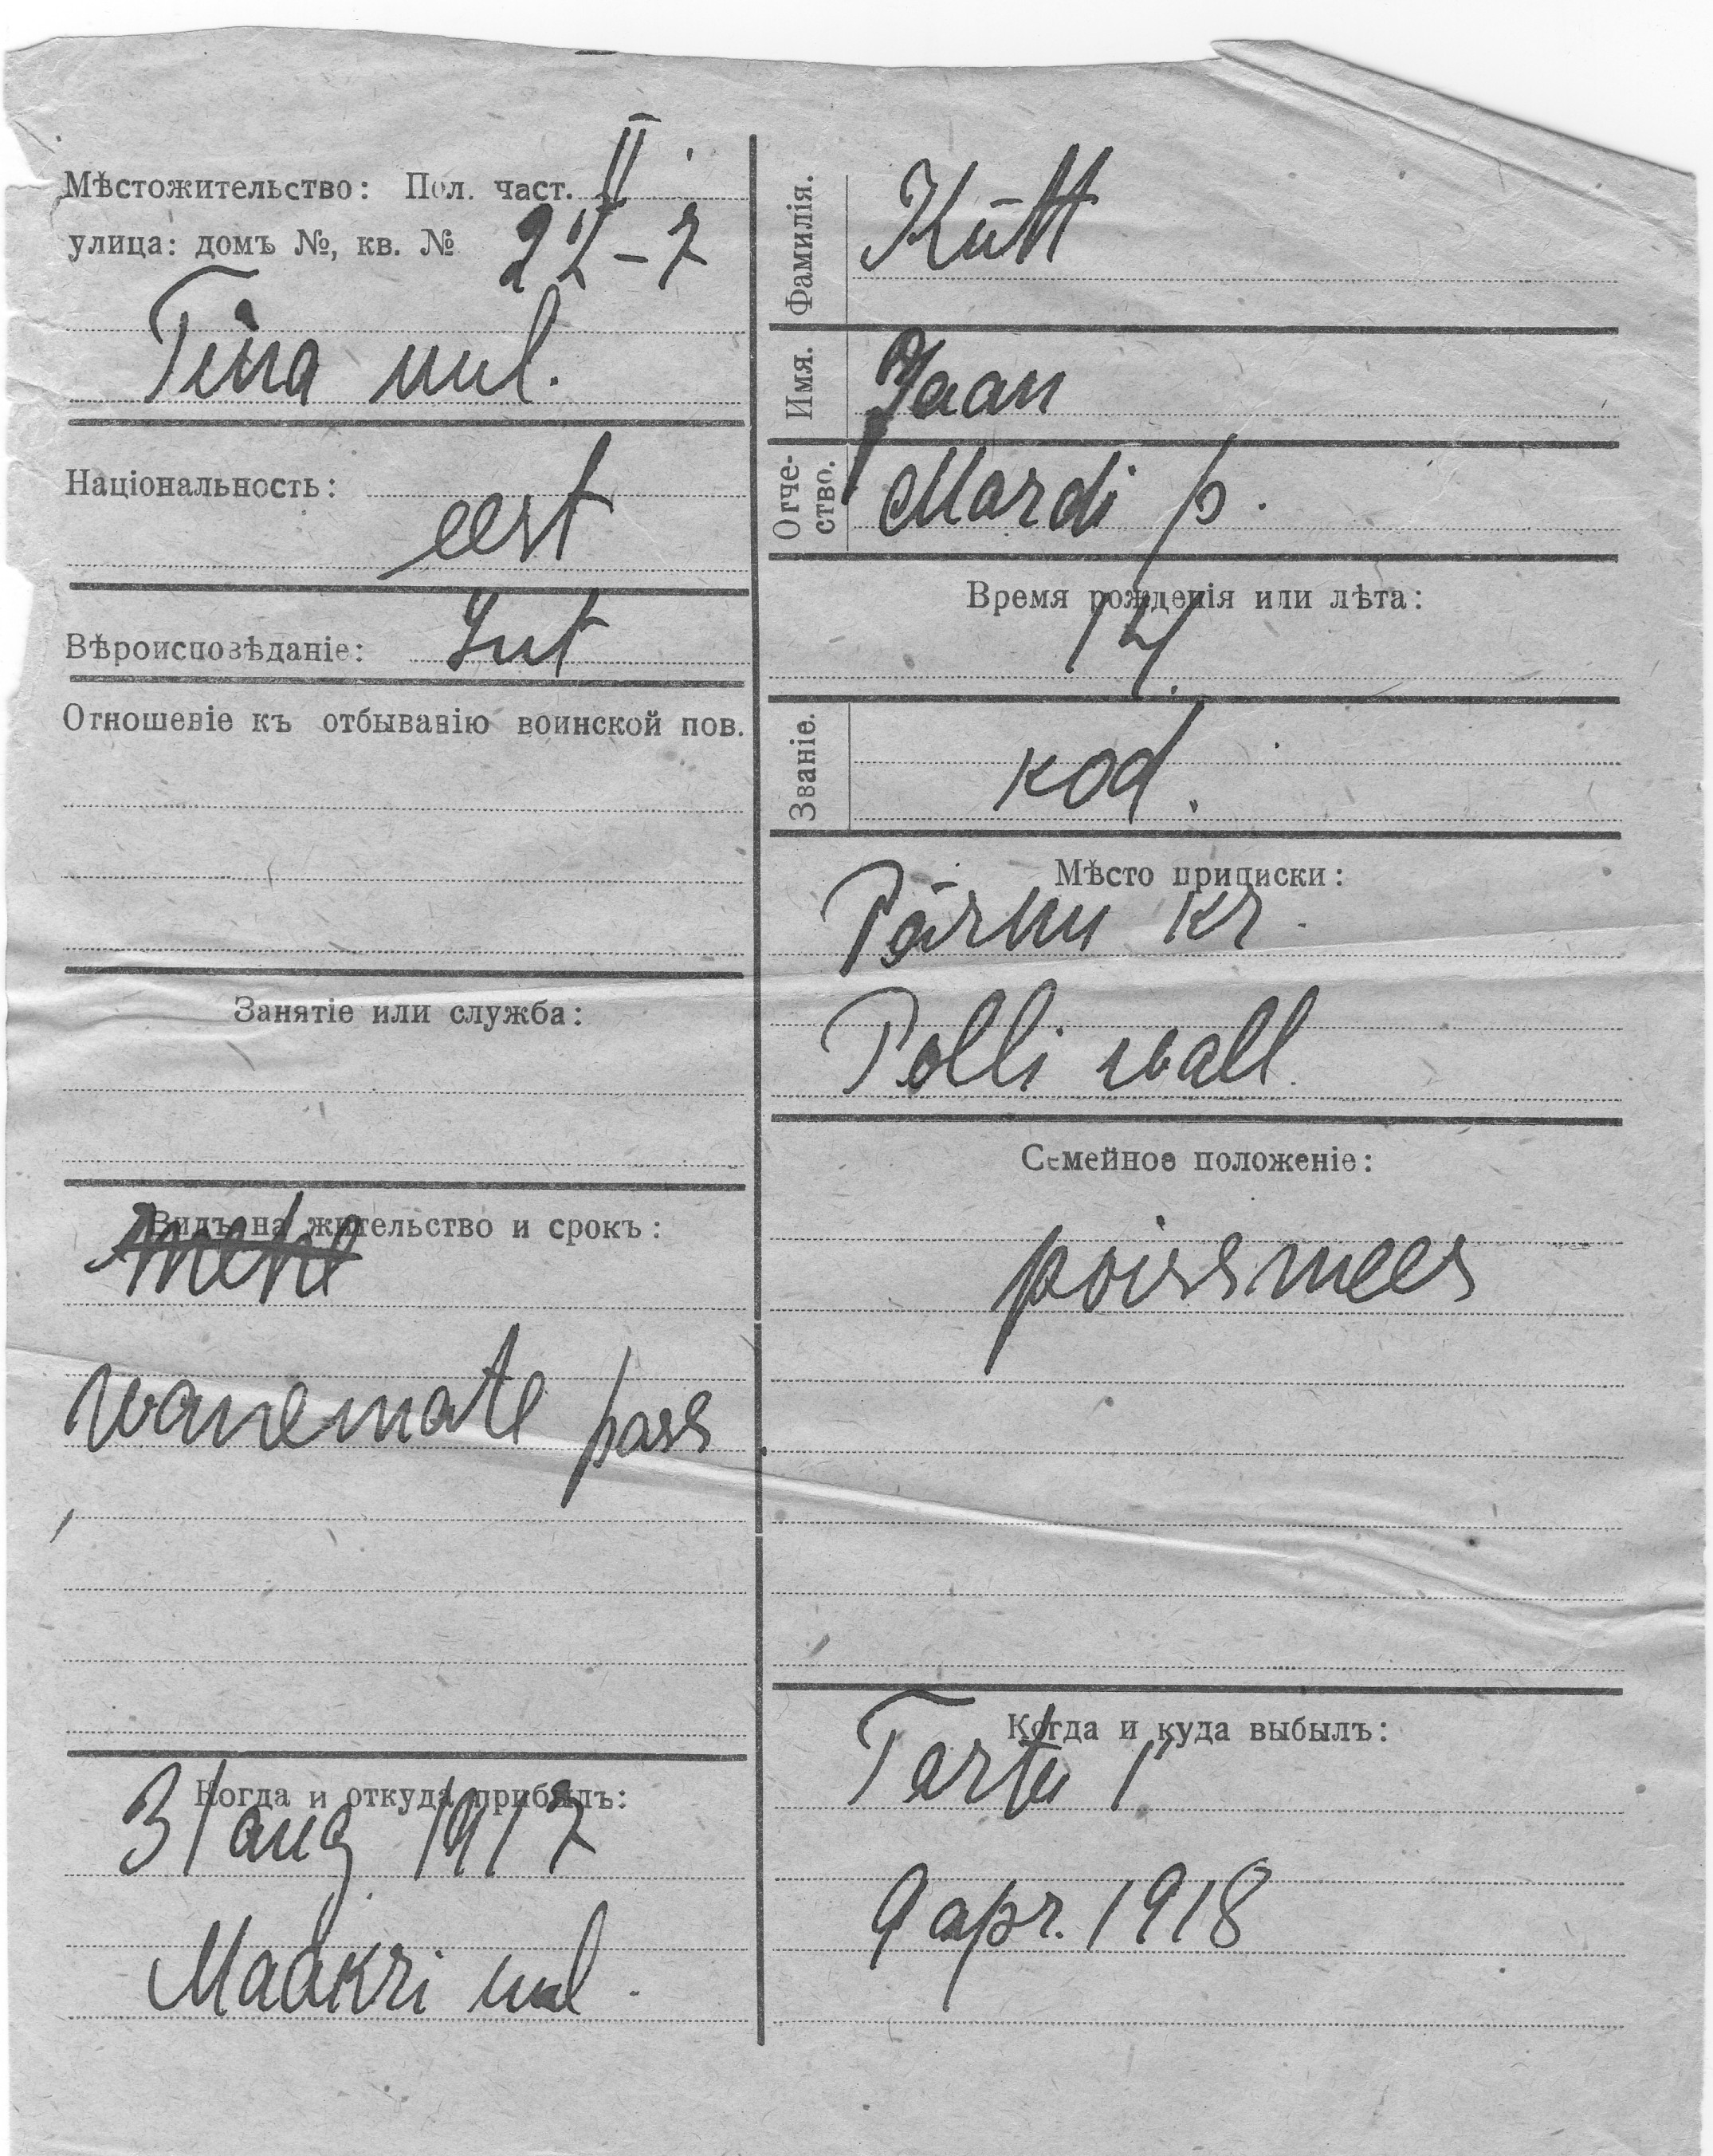 Мѣстожительство: Пол. част. II
улица: домъ №, кв. № 22-7
Tina uul.
Національность:
eest
Вѣроисповѣданіе: Lut
Отношеніе къ отбыванію воинской пов.
Занятіе или служба:
Видъ на жительство и срокъ:
wanemate pass
Когда и откуда прибылъ:
31 aug 1917
Maakri uul.
Фамилія. Kütt
Имя. Jaan
Отчество. Mardi p.
Время рожденія или лѣта:
14.
Званіе. kod.
Мѣсто приписки:
Pärnu kr.
Polli wall.
Семейное положеніе:
poissmees
Когда и куда выбылъ:
Tartu
9 apr. 1918